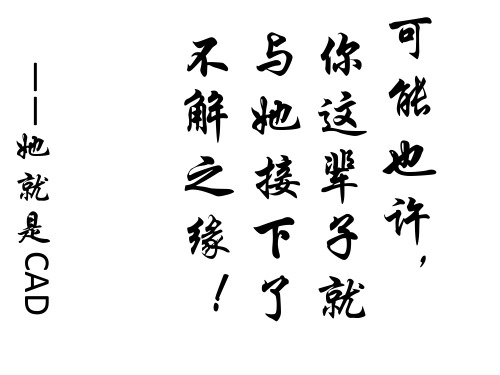 可能也许，
你这辈子就
与她接下了
不解之缘！
——她就是CAD